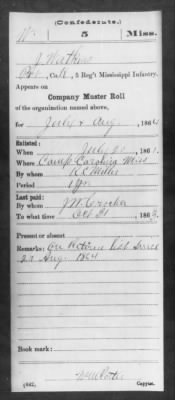 (Confederate.)
W 5 Miss.
J Watkins
Co. K, 5 Reg't Mississippi Infantry.
Appears on
Company Muster Roll
of the organization named above,
for July & Aug, 1864
Enlisted:
When July 20, 186
Where Camp Carolina Miss
By whom
Period
Last paid:
By whom J W Crocker
To what time Oct 31, 186
Present or absent
Remarks:
Aug. 1864
Book mark:
(642)
Copyist.